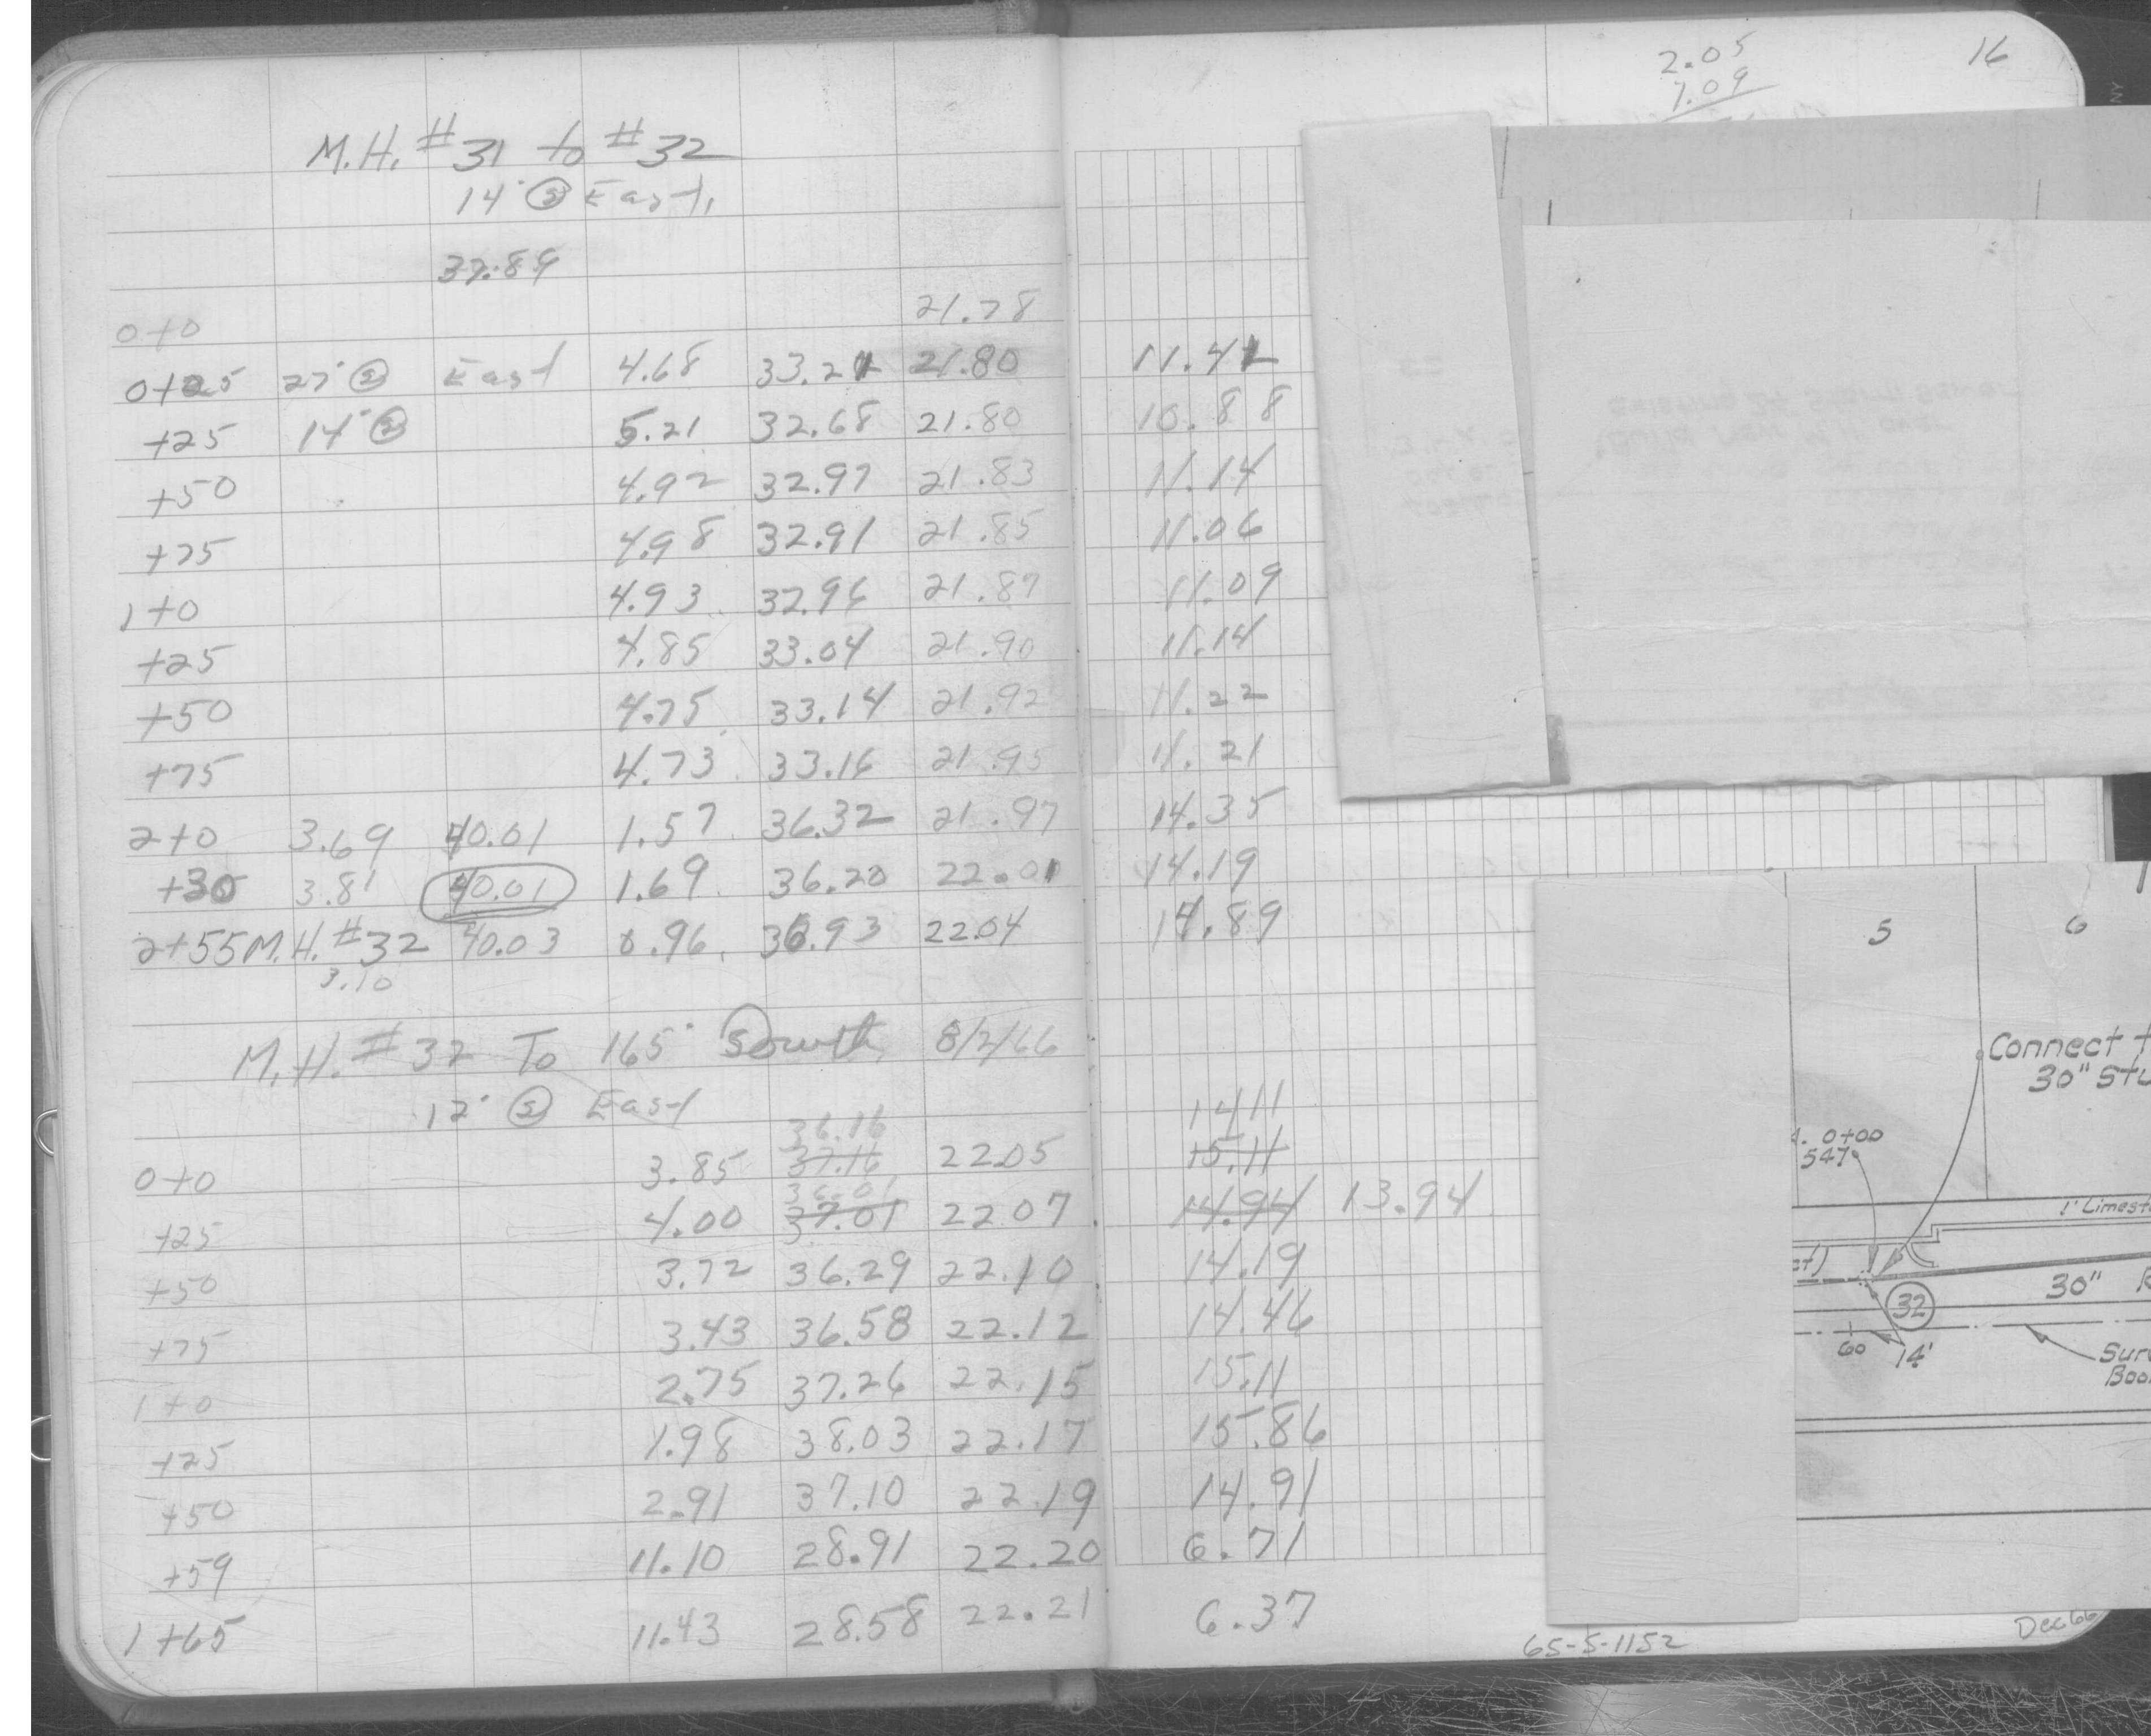 2.05
7.09
16
M.H. #31 to #32
14' Ⓢ East,
37.89
0+0 21.78
0+25 27' Ⓢ East 4.68 33.21 21.80 11.41
+25 14' Ⓢ 5.21 32.68 21.80 10.88
+50 4.92 32.97 21.83 11.14
+75 4.98 32.91 21.85 11.06
1+0 4.93 32.96 21.87 11.09
+25 4.85 33.04 21.90 11.14
+50 4.75 33.14 21.92 11.22
+75 4.73 33.16 21.95 11.21
2+0 3.69 40.01 1.57 36.32 21.97 14.35
+30 3.81 40.01 1.69 36.20 22.01 14.19
2+55 M.H. #32 40.03 0.96 36.93 22.04 14.89
3.10
M.H. #32 To 165' South, 8/2/66
12' Ⓢ East
36.16 14.11
0+0 3.85 37.16 22.05 15.11
36.01
+25 4.00 37.01 22.07 14.94 13.94
+50 3.72 36.29 22.10 14.19
+75 3.43 36.58 22.12 14.46
1+0 2.75 37.26 22.15 15.11
+25 1.98 38.03 22.17 15.86
+50 2.91 37.10 22.19 14.91
+59 11.10 28.91 22.20 6.71
1+65 11.43 28.58 22.21 6.37
5 6
Connect
30"
0+00
547
1' Limest
32
30" R
60 14'
Sur
Boo
65-5-1152
Dec 66